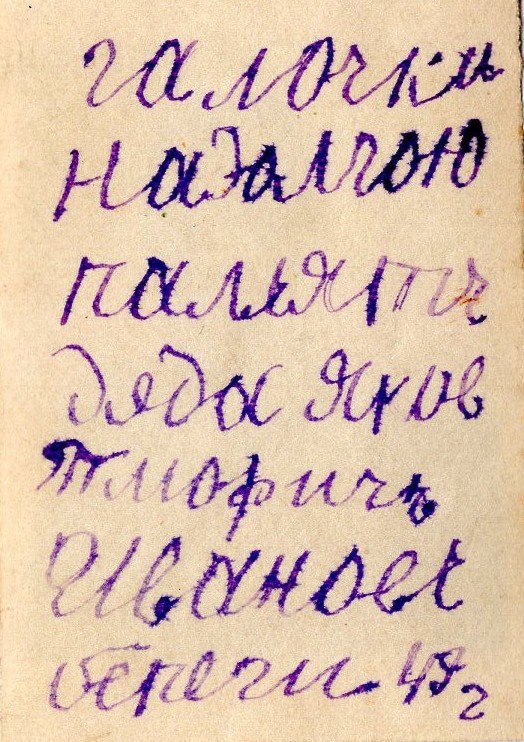 галочки
надалгою
памьять
дядя Яков
Тимофичь
Иванов
береги 49г